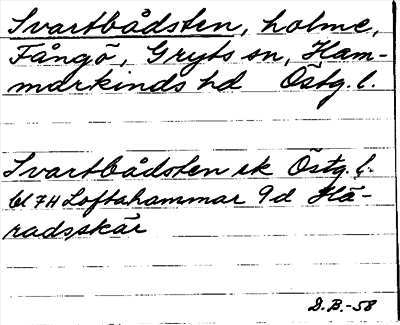 Svartbådsten, holme,
Fångö, Gryts sn, Ham-
markinds hd Östg. l.
Svartbådsten ek Östg. l.
bl 7H Loftahammar 9d Hä-
radsskär
D.B.-58